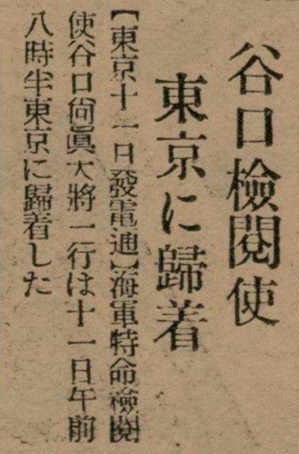 谷口檢閱使
東京に歸着
【東京十一日發電通】海軍特命檢閱
使谷口尙眞大將一行は十一日午前
八時半東京に歸着した